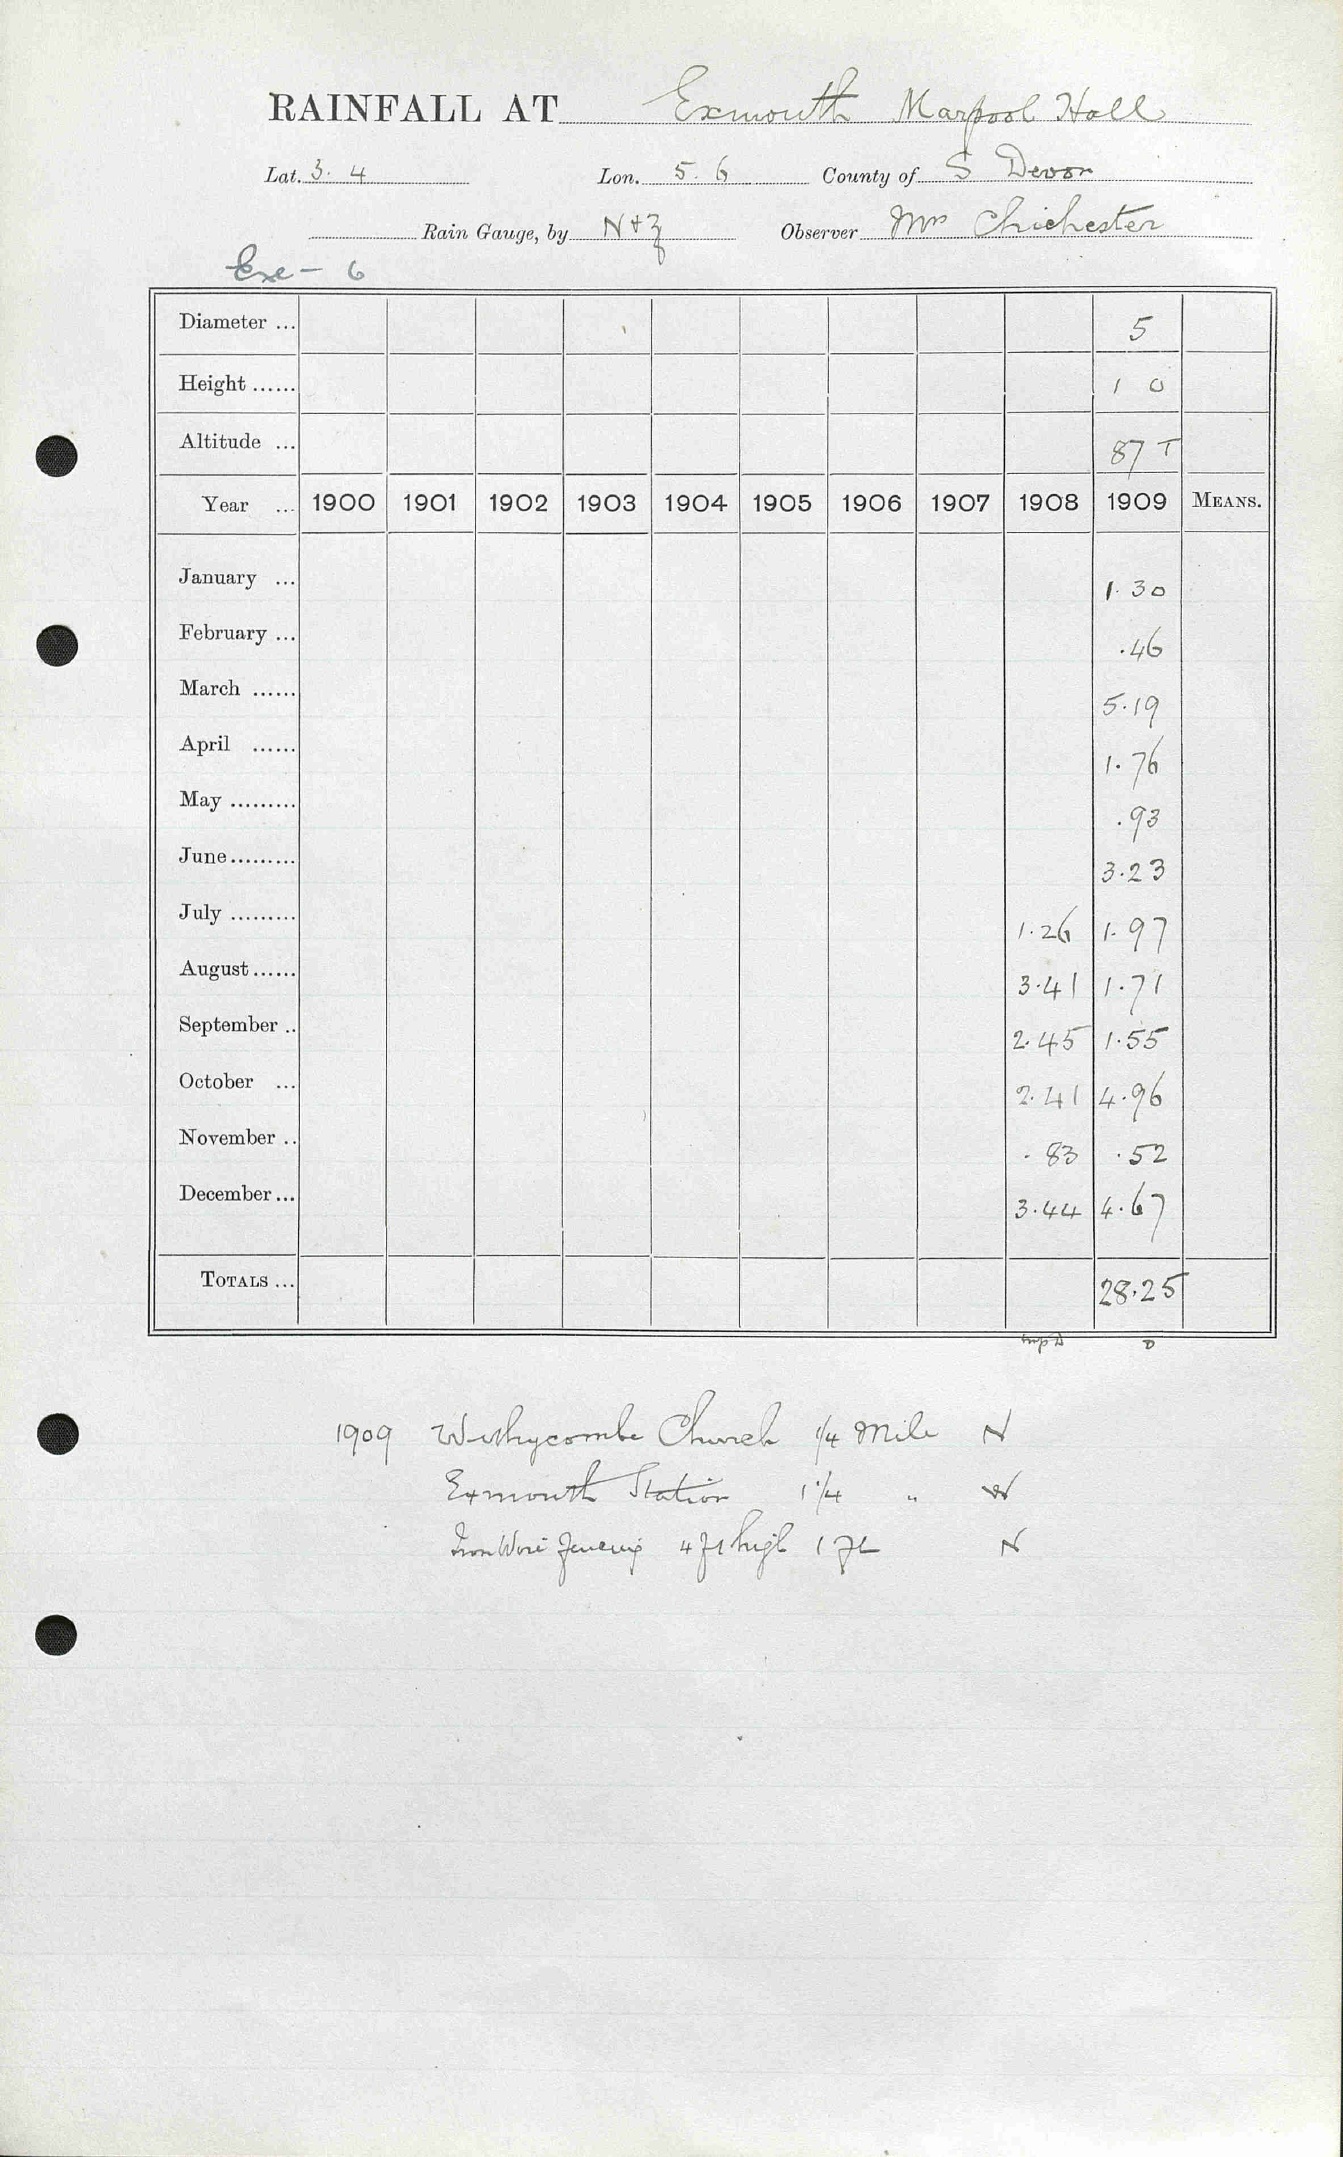 RAINFALL AT Exmouth Marpool Hall
Lat. 3. 4 Lon. 5. 6 County of S Devon
Rain Gauge, by N & Z Observer Mrs Chichester
Exe - 6
Diameter ... 5
Height ...... 1 0
Altitude ... 87 T
Year ... 1900 1901 1902 1903 1904 1905 1906 1907 1908 1909 MEANS.
January ... 1.30
February ... .46
March ...... 5.19
April ...... 1.76
May ......... .93
June ......... 3.23
July ......... 1.26 1.97
August ...... 3.41 1.71
September .. 2.45 1.55
October ... 2.41 4.96
November .. .83 .52
December ... 3.44 4.67
TOTALS ... 28.25
D
1909 Withycombe Church 1/4 Mile N
Exmouth Station 1 1/4 " W
Iron Wire fencing 4 ft high 1 ft N